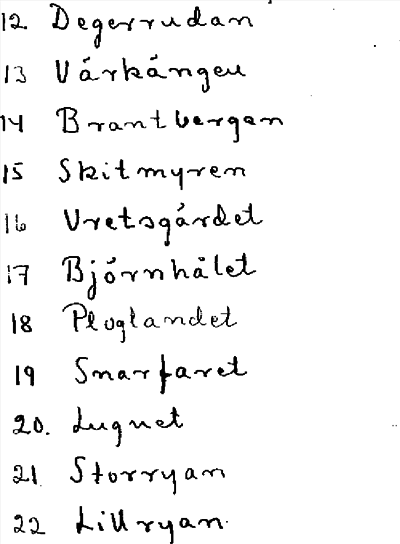 12 Degerrudan
13 Vårkängen
14 Brantbergen
15 Skitmyren
16 Vretsgärdet
17 Björnhålet
18 Ploglandet
19 Snarfaret
20. Lugnet
21 Storryan
22 Lillryan